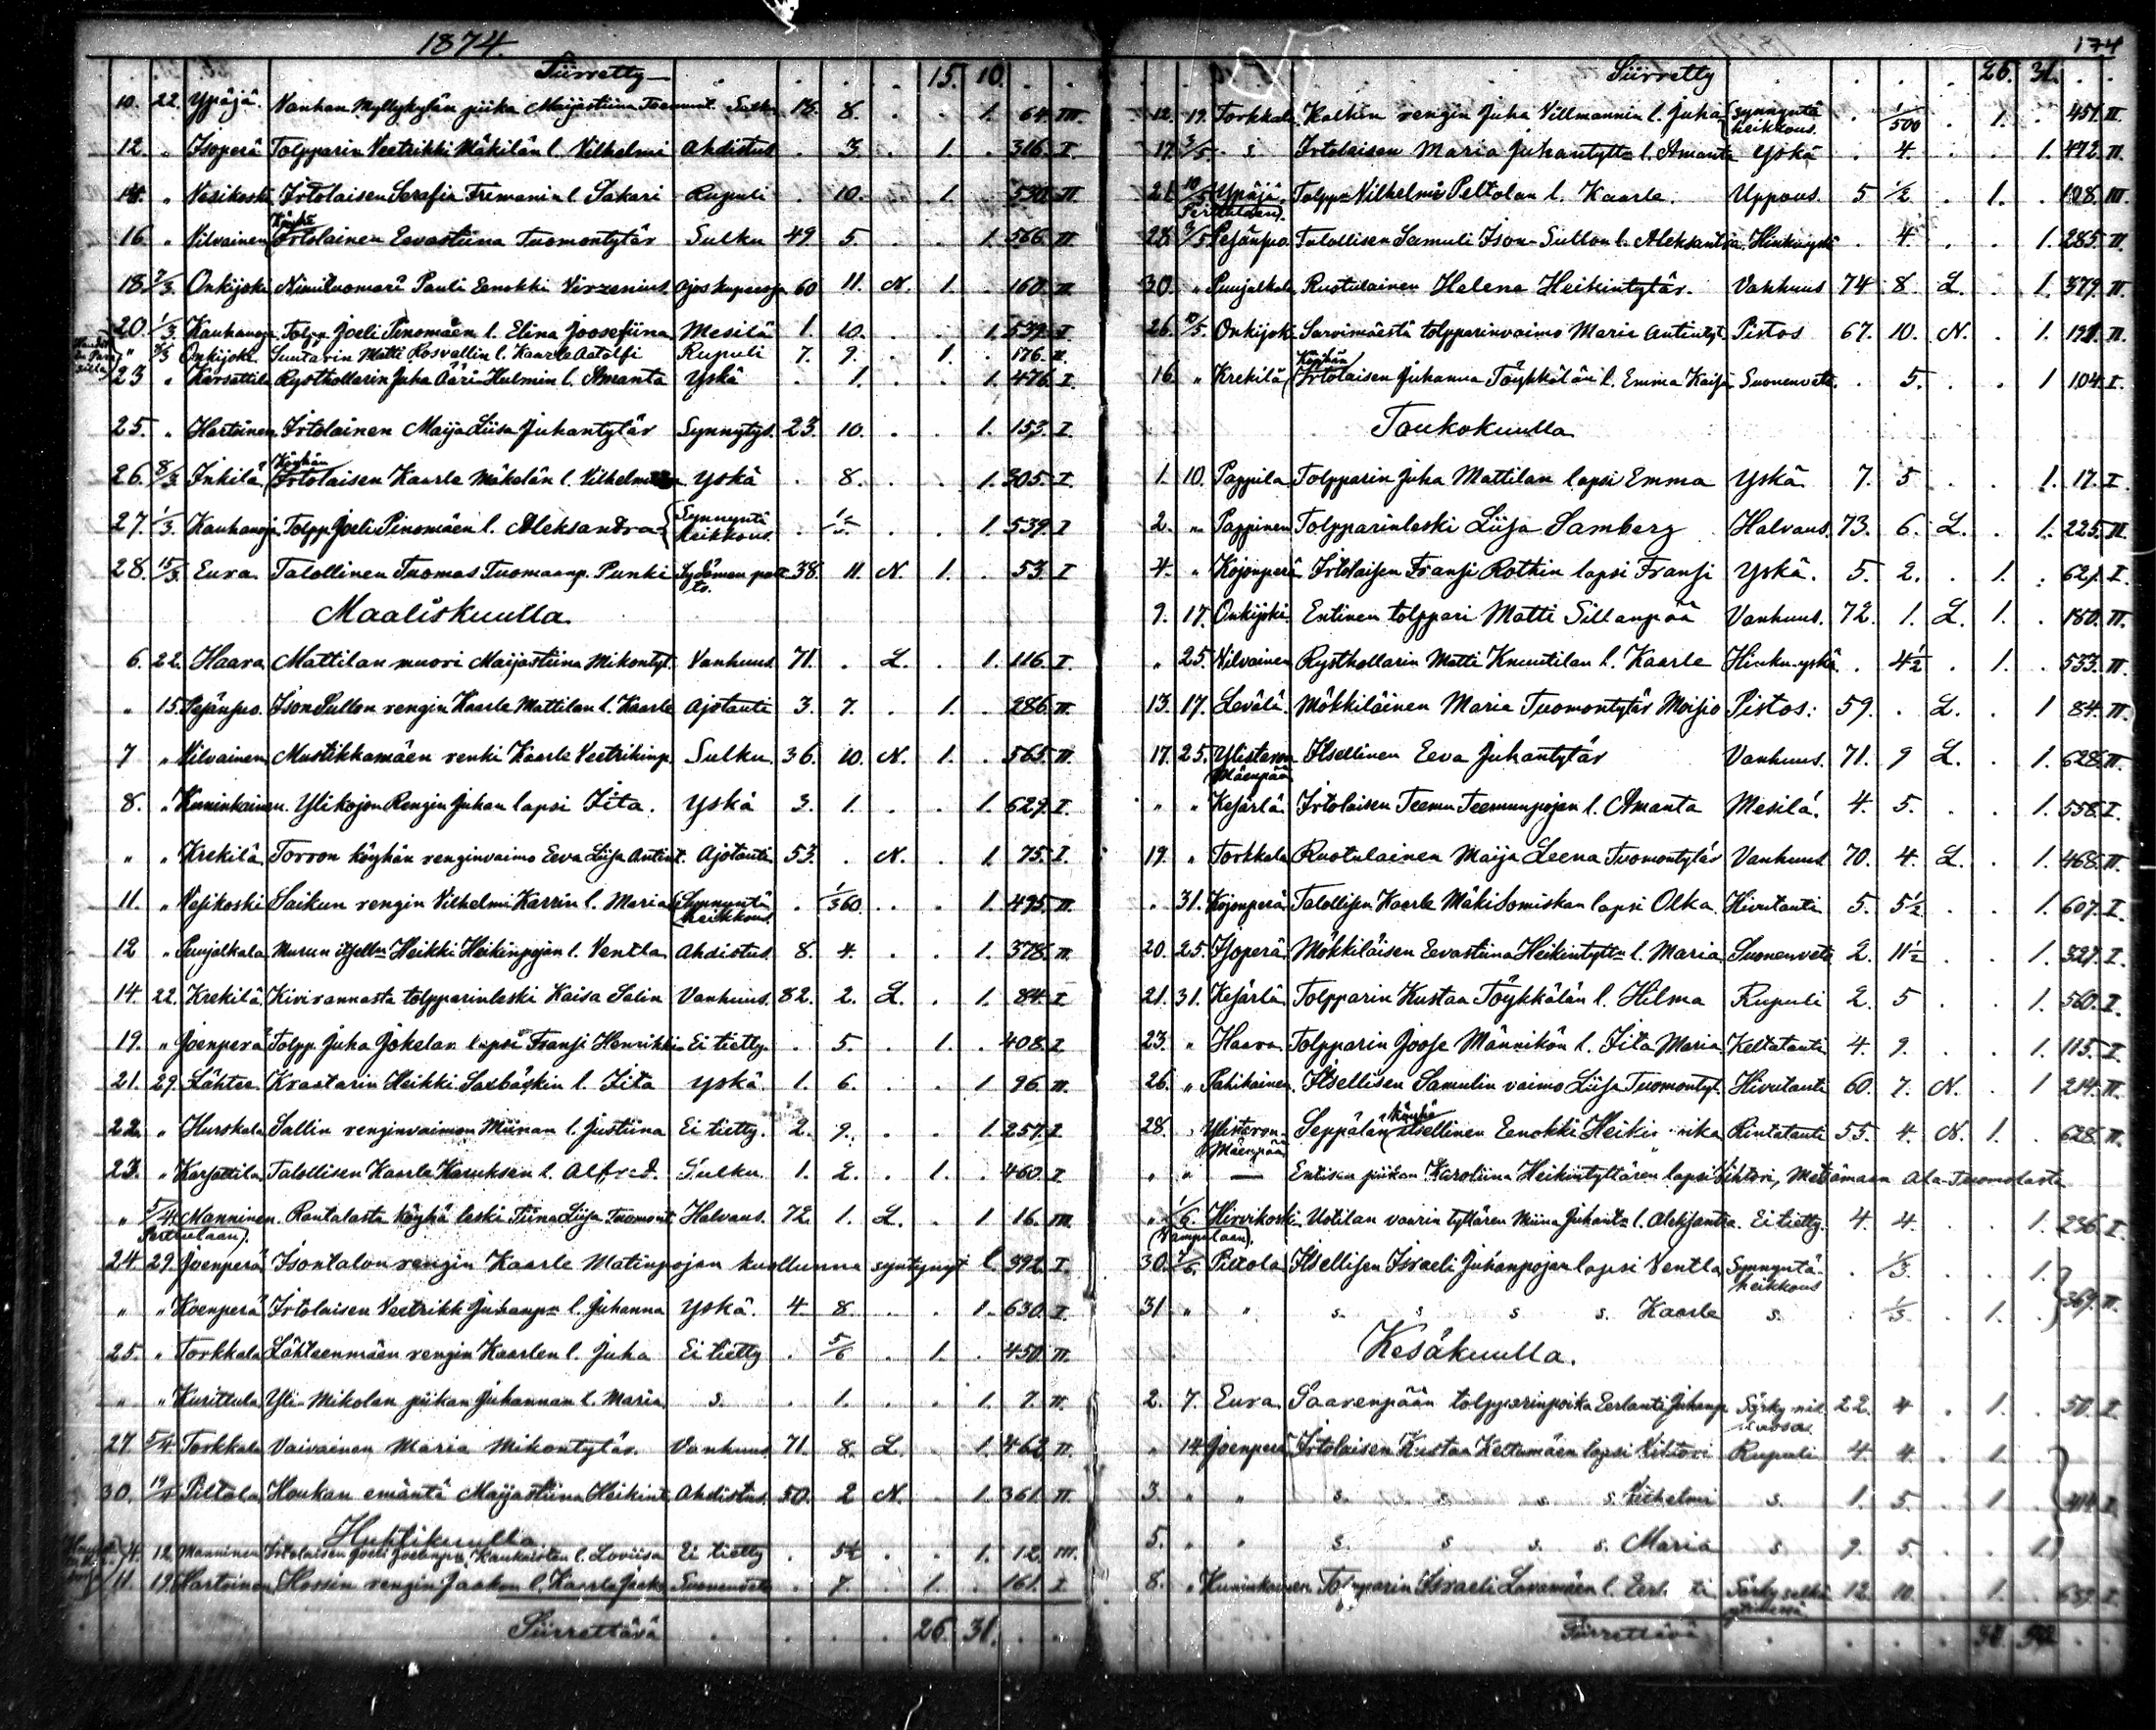 1874.
Siirretty . . . . 15. 10. . .
10. 22. Ypäjä. Vanhan Myllykylän piika Maijastiina Sulku 18. 8. . . 1. 64. III.
12. " Isoperä Tolpparin Veetrikki Mäkilän l. Vilhelmi Ahdistus . 3. . 1. . 316. I.
14. " Vesikoski Irtolaisen Serafia Fremanin l. Sakari Rupuli . 10. . 1. . 530. II.
16. " Vilvainen Köyhä Irtolainen Eevastiina Tuomontytär Sulku 49 5. . . 1. 566. II.
18. 7/3. Onkijoki Nimituomari Pauli Eenokki Virzenius. 60 11. N. 1. . 160. II.
20. 1/3. Kauhanoja Tolpp. Joeli Pinomäen l. Elina Joosefiina Mesilä 1. 10. . . 1. 539. I.
" 8/3 Onkijoki Suntarin Matti Rosvallin l. Kaarle Aatolfi Rupuli 7. 9. . 1. . 176. II.
23 " Karsattila Rysthollarin Juha Ääri-Hulmin l. Amanta Yskä . 1. . . 1. 476. I.
25. " Hartoinen. Irtolainen Maija Liisa Juhantytär Synnytys. 23. 10. . . 1. 153. I.
26. 8/3. Inkilä Köyhän Irtolaisen Kaarle Mäkelän l. Yskä . 8. . . 1. 305. I.
27. 1/3. Kauhanoja Tolpp. Joeli Pinomäen l. Aleksandra Synnyntä heikkous. . 1/2. . . 1. 539. I
28. 15/3. Eura. Talollinen Tuomas Tuomaanp. Punki 38. 11. N. 1. . 53. I
Maaliskuulla.
6. 22. Haara Mattilan muori Maijastiina Mikontyt. Vanhuus 71. . L. . 1. 116. I.
" 15. Pejänsuo. Ison Sullon rengin Kaarle Mattilan l. Kaarle Ajotauti 3. 7. . 1. . 286. II.
7 " Vilvainen Mustikkamäen renki Kaarle Veetrikinp. Sulku. 36. 10. N. 1. . 565. II.
8. " Kuninkainen. Ylikojon Rengin Juhan lapsi Iita. Yskä 3. 1. . . 1. 629. I.
" " Krekilä Torron köyhän renginvaimo Eeva Liisa Antint. Ajotauti 53. . N. . 1 75. I.
11. " Vesikoski Saikun rengin Vilhelmi Karrin l. Maria Synnyntä heikkous. . 1/360. . . 1. 495. II.
12 " Puujalkala Murun itsell:n Heikki Heikinpojan l. Ventla Ahdistus 8. 4. . . 1. 378. II.
14 22. Krekilä Kivirannasta tolpparinleski Kaisa Salin Vanhuus. 82. 2. L. . 1. 84. I
19. " Joenperä Tolpp. Juha Jokelan lapsi Fransi Henrikki Ei tietty. . 5. . 1. . 408. I
21. 29. Lähtee. Krastarin Heikki l. Iita Yskä 1. 6. . . 1 96. III.
22. " Hurskala Sallin renginvaimon Miinan l. Justiina Ei tietty. 2. 9. . . 1. 257. I
23. " Karsattila Talollisen Kaarle Karuksen l. Alfred. Sulku. 1. 2. . 1. . 460. I
" 5/4. Manninen. (Perttulaan). Rantalasta köyhä leski Tiina Liisa Tuomont. Halvaus. 72. 1. L. . 1 16. III.
24 29. Joenperä Isontalon rengin Kaarle Matinpojan kuollunna syntynyt l. 392. I
" " Koenperä Irtolaisen Veetrikk Juhanp:n l. Juhanna Yskä. 4 8. . . 1. 630. I.
25. " Torkkala Lähteenmäen rengin Kaarlen l. Juha Ei tietty . 5/6 . 1. . 450. II.
" " Kurittula Yli-Mikolan piikan Juhannan l. Maria s. . 1. . . 1. 7. II.
27. 5/4 Torkkala Vaivainen Maria Mikontytär. Vanhuus. 71. 8. L. . 1. 462 II.
30. 19/4 Piltola Houkan emäntä Maijastiina Heikint. Ahdistus. 50. 2 N. . 1. 361. II.
Huhtikuulla
4. 12. Manninen Irtolaisen Joeli l. Loviisa Ei tietty . 5 1/2 . . 1. 12. III.
11. 19. Hartoinen Hossin rengin Jaakon l. Kaarle Suonenveto . 7. . 1. . 161. I
Siirrettävä . . . . 26. 31. . .
174
Siirretty . . . . 26. 31. . .
12. 19. Torkkala Kalkun rengin Juha Villmannin l. Juha Synnyntä heikkous. . 1/500 . 1. . 451. II.
17. 3/5. s. Irtolaisen Maria Juhantytt:n l. Amanta Yskä . 4. . . 1. 472. II.
21. 10/5 Ypäjä. Tolpp:n Vilhelmi Peltolan l. Kaarle. Uppous. 5 1/2 . 1. . 128. III.
28. 3/5. Pejänsuo. Talollisen Samuli Ison-Sullon l. Aleksantra. Hinkuyskä . 4. . . 1. 285. II.
30. " Puujalkala Ruotulainen Helena Heikintytär. Vanhuus 74 8. L. . 1. 379. II.
26. 10/5. Onkijoki Sarvimäestä tolpparinvaimo Maria Antintyt. Pistos 67. 10. N. . 1. 191. II.
16. " Krekilä Köyhän Irtolaisen Juhanna Töykkälän l. Emma Kaisa Suonenveto. . 5. . . 1 104. I.
Toukokuulla
1. 10. Pappila Tolpparin Juha Mattilan lapsi Emma Yskä 7. 5 . . 1. 17. I.
2. " Pappinen Tolpparinleski Liisa Samberg Halvaus. 73. 6. L. . 1. 225. III.
4. " Kojonperä Irtolaisen Fransi Rothin lapsi Fransi Yskä. 5. 2. . 1. . 621. I.
9. 17. Onkijoki Entinen tolppari Matti Sillanpää Vanhuus. 72. 1. L. 1. . 180. II.
" 25. Vilvainen Rysthollarin Matti Knuutilan l. Kaarle Hinku-yskä . 4 1/2 . 1. . 533. II.
13. 17. Levälä. Mökkiläinen Maria Tuomontytär Moisio Pistos: 59. . L. . 1 84. III.
17. 25. Ylistaron Mäenpää Itsellinen Eeva Juhantytär Vanhuus. 71. 9 L. . 1. 628. II.
" " Kesärlä Irtolaisen Teemu Teemunpojan l. Amanta Mesilä. 4. 5. . . 1. 558. I.
19. " Torkkala Ruotulainen Maija Leena Tuomontytär Vanhuus 70. 4. L. . 1. 468. II.
" 31. Kojonperä Talollisen Kaarle lapsi Olka. Hivutauti 5. 5 1/2 . . 1. 607. I.
20. 25. Isoperä Mökkiläisen Eevastiina Heikintytt:n l. Maria Suonenveto 2. 11 1/2 . . 1. 327. I.
21. 31. Kesärlä Tolpparin Kustaa Töykkälän l. Hilma Rupuli 2. 5 . . 1. 560. I.
23. " Haara Tolpparin Joose Männikön l. Iita Maria Keltatauti 4. 9. . . 1. 115. I.
26. " Pahikainen. Itsellisen Samulin vaimo Liisa Tuomontyt. Hivutauti 60. 7. N. . 1 214. II.
28. " Ylistaron Mäenpää Seppälän köyhä itsellinen Eenokki Rintatauti 55. 4. N. 1. . 628. II.
" " — Entisen piikan Karoliina Heikintyttären lapsi Vihtori, Metsämaan Ala-Tuomolasta
" 1/6. Hirvikoski Uotilan vaarin tyttären Miina Juhant:n l. Aleksantra. Ei tietty. 4. 4. . . 1. 236. I.
30. 7/6. Piltola Itsellisen Israeli Juhanpojan lapsi Ventla Synnyntä-heikkous . 1/3. . . 1.
31 " " s. s s s. Kaarle s. . 1/3. . 1. . 369. II.
Kesäkuulla.
2. 7. Eura. Saarenpään tolpparinpoika Eerlanti Juhanp. 22. 4 . 1. . 50. I.
" 14. Joenperä Irtolaisen Kustaa Keltamäen lapsi Vihtori Rupuli 4. 4. . 1.
3. " " s. s. s. s. Vilhelmi s. 1. 5. . 1. . 414. I.
5. " " s. s s. s. Maria s. 9. 5. . . 1.
8. " Kuninkainen Tolpparin Israeli Lavamäen l. 12. 10. . 1. . 639. I.
Siirrettävä